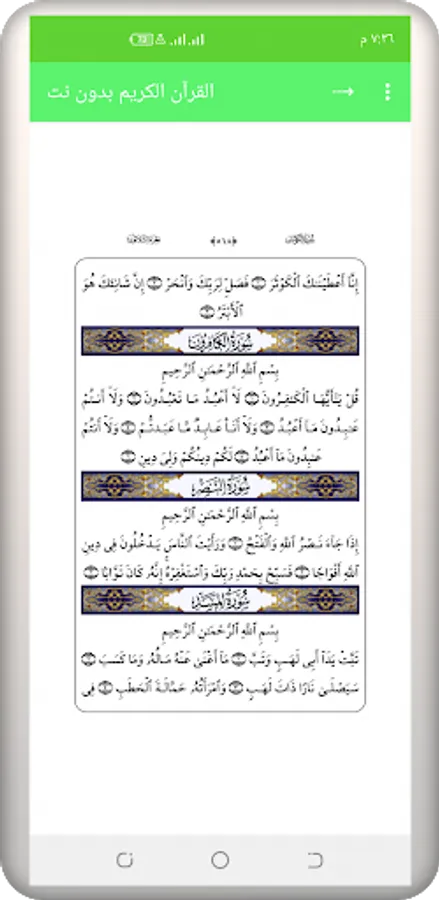 ٧:٣٦ م
القرآن الكريم بدون نت
إِنَّا أَعْطَيْنَٰكَ ٱلْكَوْثَرَ ۝ فَصَلِّ لِرَبِّكَ وَٱنْحَرْ ۝ إِنَّ شَانِئَكَ هُوَ
ٱلْأَبْتَرُ ۝
سُورَةُ الكَافِرُونَ
بِسْمِ ٱللَّهِ ٱلرَّحْمَٰنِ ٱلرَّحِيمِ
قُلْ يَٰٓأَيُّهَا ٱلْكَٰفِرُونَ ۝ لَآ أَعْبُدُ مَا تَعْبُدُونَ ۝ وَلَآ أَنتُمْ
عَٰبِدُونَ مَآ أَعْبُدُ ۝ وَلَآ أَنَا۠ عَابِدٌ مَّا عَبَدتُّمْ ۝ وَلَآ أَنتُمْ
عَٰبِدُونَ مَآ أَعْبُدُ ۝ لَكُمْ دِينُكُمْ وَلِىَ دِينِ ۝
سُورَةُ النَّصْرِ
بِسْمِ ٱللَّهِ ٱلرَّحْمَٰنِ ٱلرَّحِيمِ
إِذَا جَآءَ نَصْرُ ٱللَّهِ وَٱلْفَتْحُ ۝ وَرَأَيْتَ ٱلنَّاسَ يَدْخُلُونَ فِى دِينِ
ٱللَّهِ أَفْوَاجًا ۝ فَسَبِّحْ بِحَمْدِ رَبِّكَ وَٱسْتَغْفِرْهُ إِنَّهُۥ كَانَ تَوَّابًۢا ۝
سُورَةُ المَسَدِ
بِسْمِ ٱللَّهِ ٱلرَّحْمَٰنِ ٱلرَّحِيمِ
تَبَّتْ يَدَآ أَبِى لَهَبٍ وَتَبَّ ۝ مَآ أَغْنَىٰ عَنْهُ مَالُهُۥ وَمَا كَسَبَ ۝
سَيَصْلَىٰ نَارًا ذَاتَ لَهَبٍ ۝ وَٱمْرَأَتُهُۥ حَمَّالَةَ ٱلْحَطَبِ ۝ فِى